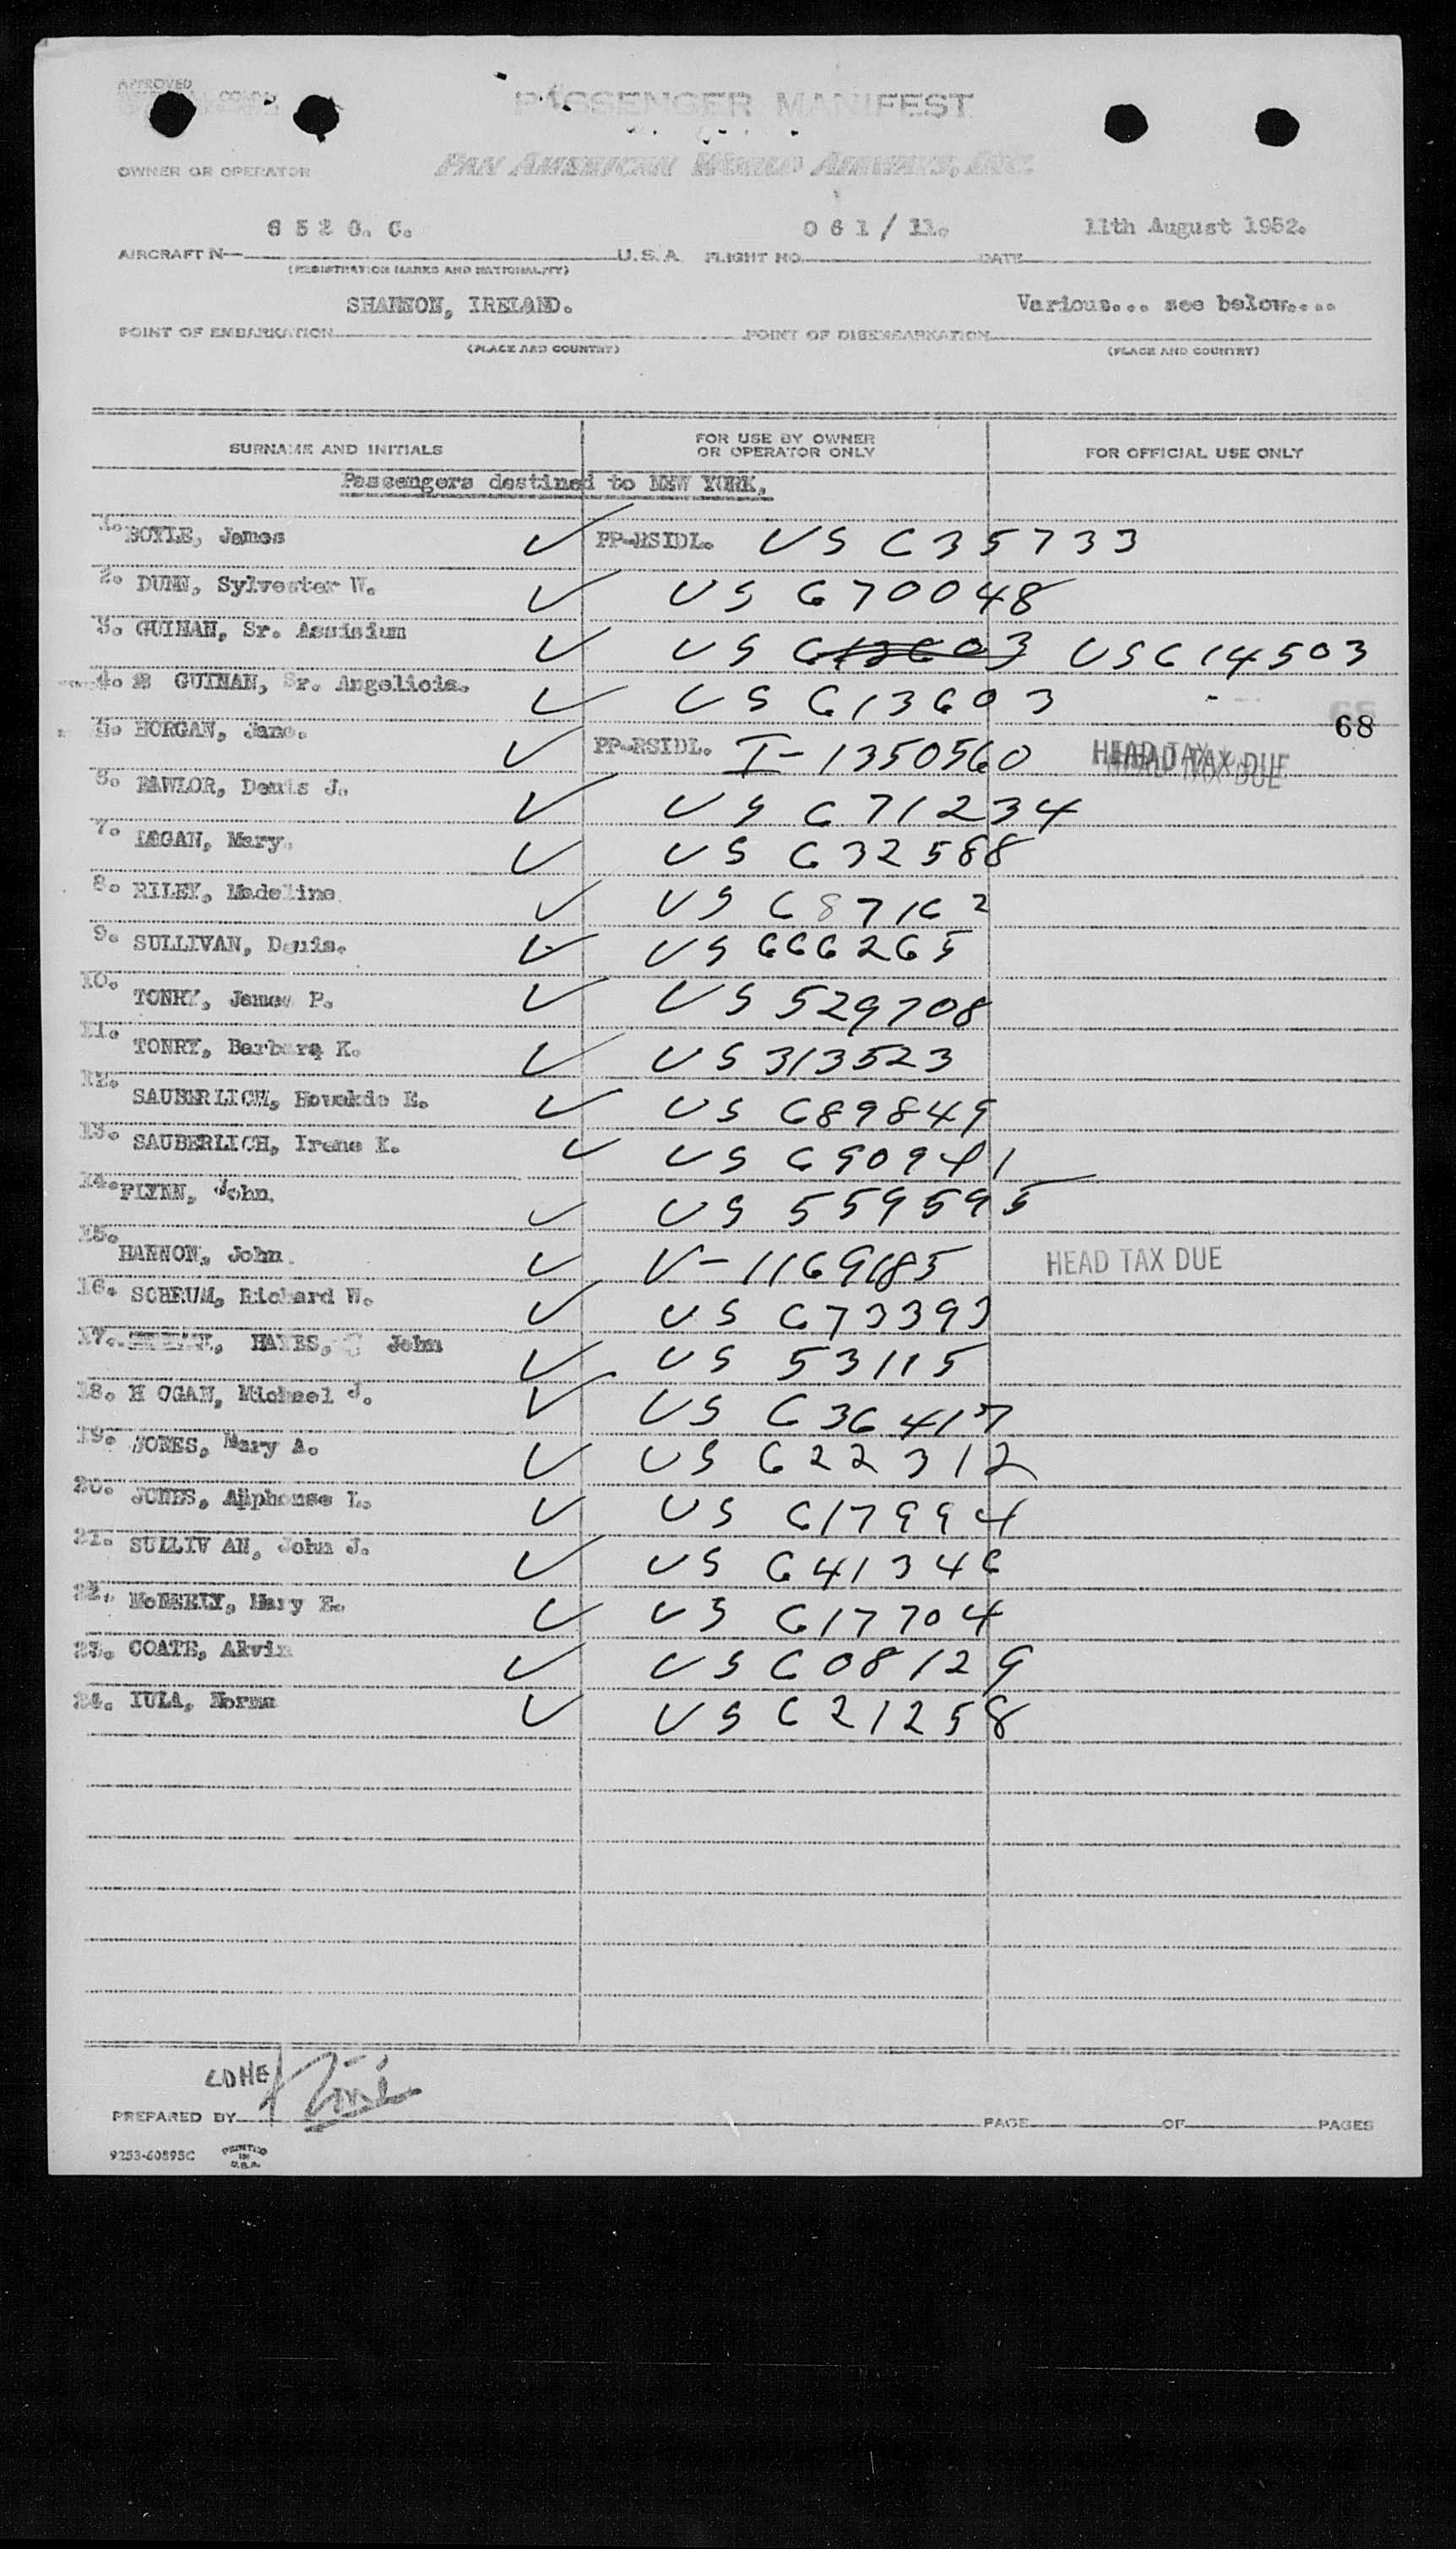 APPROVED
PASSENGER MANIFEST
OWNER OR OPERATOR PAN AMERICAN WORLD AIRWAYS, INC.
6 5 2 0. C. 0 6 1 / 11. 11th August 1952.
AIRCRAFT N— U.S.A. FLIGHT NO. DATE
(REGISTRATION MARKS AND NATIONALITY)
SHANNON, IRELAND. Various... see below....
POINT OF EMBARKATION POINT OF DISEMBARKATION
(PLACE AND COUNTRY) (PLACE AND COUNTRY)
SURNAME AND INITIALS FOR USE BY OWNER OR OPERATOR ONLY FOR OFFICIAL USE ONLY
Passengers destined to NEW YORK.
1. BOYLE, James ✓ PP-RSIDL. US 635733
2. DUNN, Sylvester W. ✓ US 670048
3. GUINAN, Sr. Assisium ✓ US 613603 US 614503
4. GUINAN, Sr. Angelicia. ✓ US 613603
68
5. HORGAN, Jane. ✓ PP-RSIDL. I-1350560 HEAD TAX DUE
6. LAWLOR, Denis J. ✓ US 671234
7. LAGAN, Mary. ✓ US 632588
8. RILEY, Madeline ✓ US 687162
9. SULLIVAN, Denis. ✓ US 666265
10. TONRY, James P. ✓ US 529708
11. TONRY, Barbara K. ✓ US 313523
12. SAUBERLICH, E. ✓ US 689849
13. SAUBERLICH, Irene K. ✓ US 690941
14. FLYNN, John. ✓ US 559595
15. HANNON, John. ✓ V-1169185 HEAD TAX DUE
16. SCHRUM, Richard W. ✓ US 673393
17. HAYES, John ✓ US 53115
18. H OGAN, Michael J. ✓ US 636417
19. JONES, Mary A. ✓ US 622312
20. JONES, Alphonse L. ✓ US 617994
21. SULLIV AN, John J. ✓ US 641346
22. McNEELY, Mary E. ✓ US 617704
23. COATE, Alvin ✓ US 608129
24. IULA, Norma ✓ US 621258
PREPARED BY PAGE OF PAGES
9253-60595C PRINTED IN U.S.A.